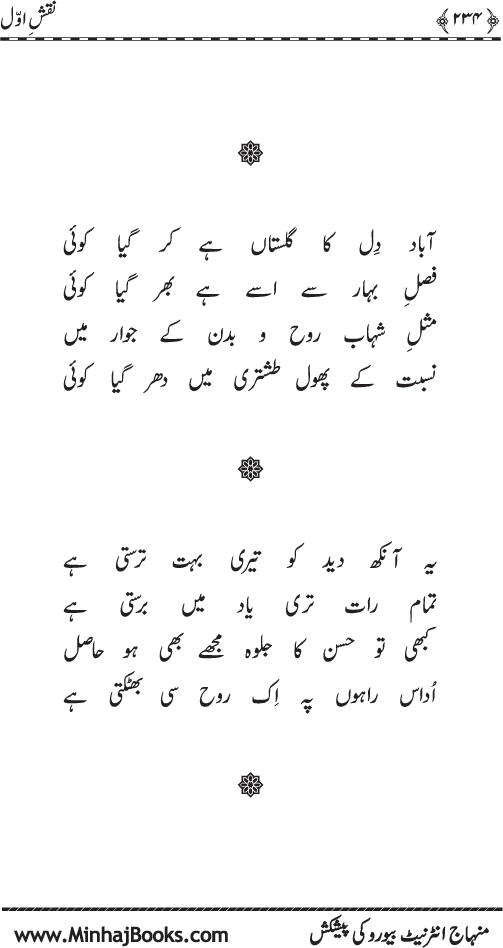 نقشِ اوّل
﴿۲۳۴﴾
آباد دِل کا گلستاں ہے کر گیا کوئی
فصلِ بہار سے اسے ہے بھر گیا کوئی
مثلِ شہاب روح و بدن کے جوار میں
نسبت کے پھول طشتری میں دھر گیا کوئی
یہ آنکھ دید کو تیری بہت ترستی ہے
تمام رات تری یاد میں برستی ہے
کبھی تو حسن کا جلوہ مجھے بھی ہو حاصل
اُداس راہوں پہ اِک روح سی بھٹکتی ہے
منہاج انٹرنیٹ بیورو کی پیشکش
www.MinhajBooks.com